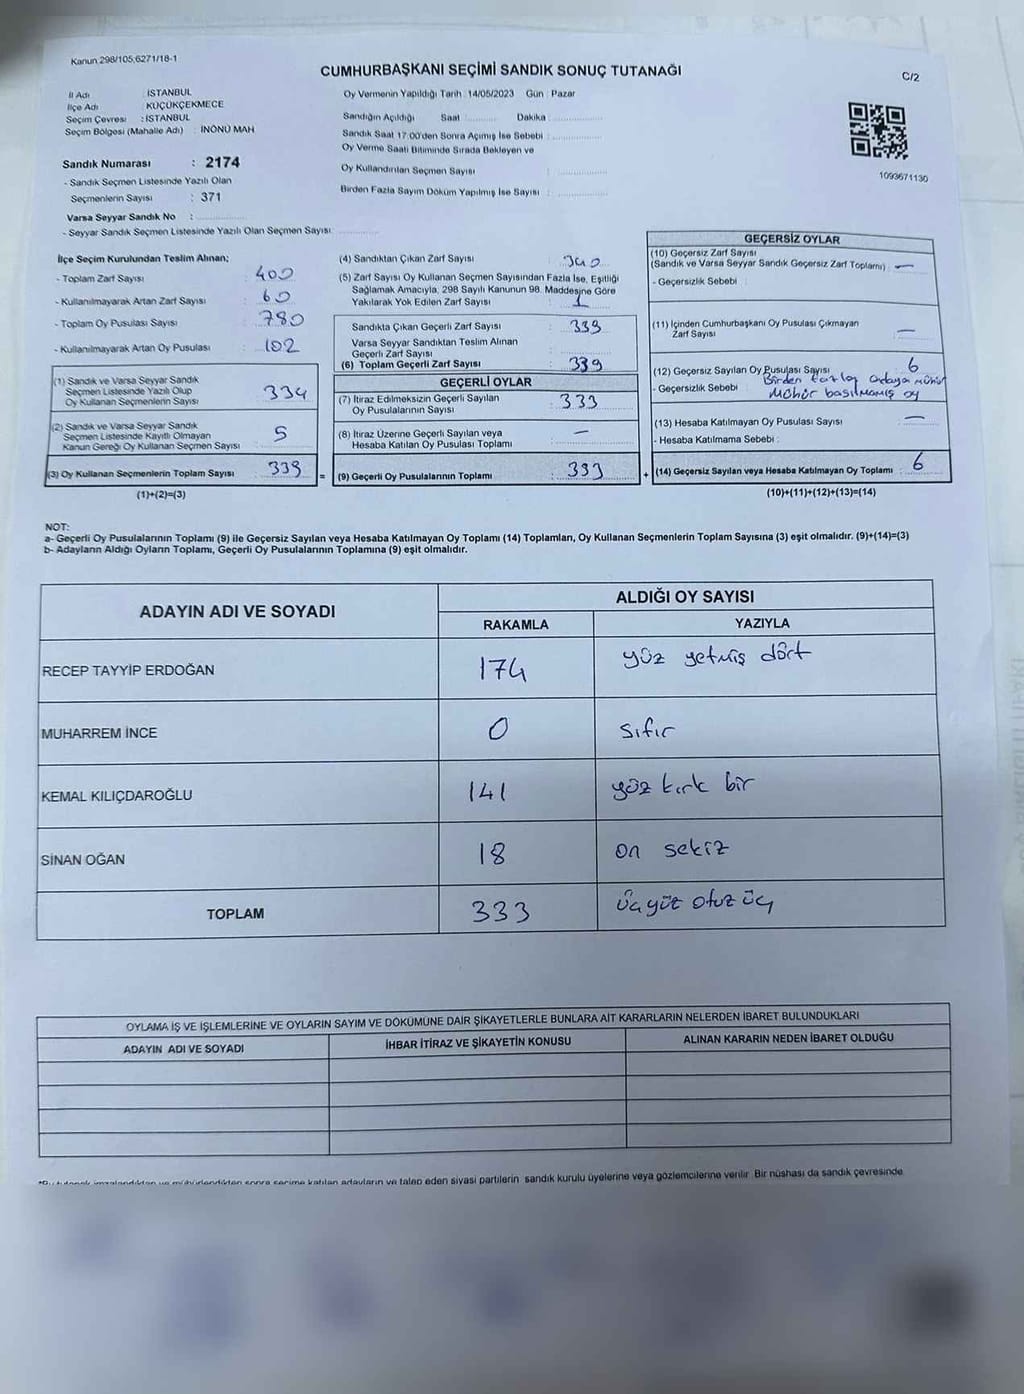 Kanun 298/105,6271/18-1
CUMHURBAŞKANI SEÇİMİ SANDIK SONUÇ TUTANAĞI
C/2
İl Adı : İSTANBUL
İlçe Adı : KÜÇÜKÇEKMECE
Seçim Çevresi : İSTANBUL
Seçim Bölgesi (Mahalle Adı) : İNÖNÜ MAH
Sandık Numarası : 2174
- Sandık Seçmen Listesinde Yazılı Olan
Seçmenlerin Sayısı : 371
Varsa Seyyar Sandık No :
- Seyyar Sandık Seçmen Listesinde Yazılı Olan Seçmen Sayısı:
Oy Vermenin Yapıldığı Tarih : 14/05/2023 Gün : Pazar
Sandığın Açıldığı Saat Dakika
Sandık Saat 17:00'den Sonra Açımış İse Sebebi :
Oy Verme Saati Bitiminde Sırada Bekleyen ve
Oy Kullandırılan Seçmen Sayısı :
Birden Fazla Sayım Döküm Yapılmış İse Sayısı :
1093671130
İlçe Seçim Kurulundan Teslim Alınan;
- Toplam Zarf Sayısı : 400
- Kullanılmayarak Artan Zarf Sayısı : 60
- Toplam Oy Pusulası Sayısı : 780
- Kullanılmayarak Artan Oy Pusulası : 102
(1) Sandık ve Varsa Seyyar Sandık
Seçmen Listesinde Yazılı Olup
Oy Kullanan Seçmenlerin Sayısı : 334
(2) Sandık ve Varsa Seyyar Sandık
Seçmen Listesinde Kayıtlı Olmayan
Kanun Gereği Oy Kullanan Seçmen Sayısı : 5
(3) Oy Kullanan Seçmenlerin Toplam Sayısı : 339 =
(1)+(2)=(3)
(4) Sandıktan Çıkan Zarf Sayısı : 340
(5) Zarf Sayısı Oy Kullanan Seçmen Sayısından Fazla İse, Eşitliği
Sağlamak Amacıyla, 298 Sayılı Kanunun 98. Maddesine Göre
Yakılarak Yok Edilen Zarf Sayısı : 1
Sandıkta Çıkan Geçerli Zarf Sayısı : 339
Varsa Seyyar Sandıktan Teslim Alınan
Geçerli Zarf Sayısı :
(6) Toplam Geçerli Zarf Sayısı : 339
GEÇERLİ OYLAR
(7) İtiraz Edilmeksizin Geçerli Sayılan
Oy Pusulalarının Sayısı : 333
(8) İtiraz Üzerine Geçerli Sayılan veya
Hesaba Katılan Oy Pusulası Toplamı : —
(9) Geçerli Oy Pusulalarının Toplamı : 333 +
GEÇERSİZ OYLAR
(10) Geçersiz Zarf Sayısı
(Sandık ve Varsa Seyyar Sandık Geçersiz Zarf Toplamı) : —
- Geçersizlik Sebebi :
(11) İçinden Cumhurbaşkanı Oy Pusulası Çıkmayan
Zarf Sayısı : —
(12) Geçersiz Sayılan Oy Pusulası Sayısı : 6
- Geçersizlik Sebebi : Birden fazla adaya mühür
mühür basılmamış oy
(13) Hesaba Katılmayan Oy Pusulası Sayısı : —
- Hesaba Katılmama Sebebi :
(14) Geçersiz Sayılan veya Hesaba Katılmayan Oy Toplamı : 6
(10)+(11)+(12)+(13)=(14)
NOT:
a- Geçerli Oy Pusulalarının Toplamı (9) ile Geçersiz Sayılan veya Hesaba Katılmayan Oy Toplamı (14) Toplamları, Oy Kullanan Seçmenlerin Toplam Sayısına (3) eşit olmalıdır. (9)+(14)=(3)
b- Adayların Aldığı Oyların Toplamı, Geçerli Oy Pusulalarının Toplamına (9) eşit olmalıdır.
ADAYIN ADI VE SOYADI
ALDIĞI OY SAYISI
RAKAMLA YAZIYLA
RECEP TAYYİP ERDOĞAN 174 yüz yetmiş dört
MUHARREM İNCE 0 sıfır
KEMAL KILIÇDAROĞLU 141 yüz kırk bir
SİNAN OĞAN 18 on sekiz
TOPLAM 333 üç yüz otuz üç
OYLAMA İŞ VE İŞLEMLERİNE VE OYLARIN SAYIM VE DÖKÜMÜNE DAİR ŞİKAYETLERLE BUNLARA AİT KARARLARIN NELERDEN İBARET BULUNDUKLARI
ADAYIN ADI VE SOYADI İHBAR İTİRAZ VE ŞİKAYETİN KONUSU ALINAN KARARIN NEDEN İBARET OLDUĞU
imzalandıktan ve mühürlendikten sonra seçime katılan adayların ve talep eden siyasi partilerin sandık kurulu üyelerine veya gözlemcilerine verilir. Bir nüshası da sandık çevresinde